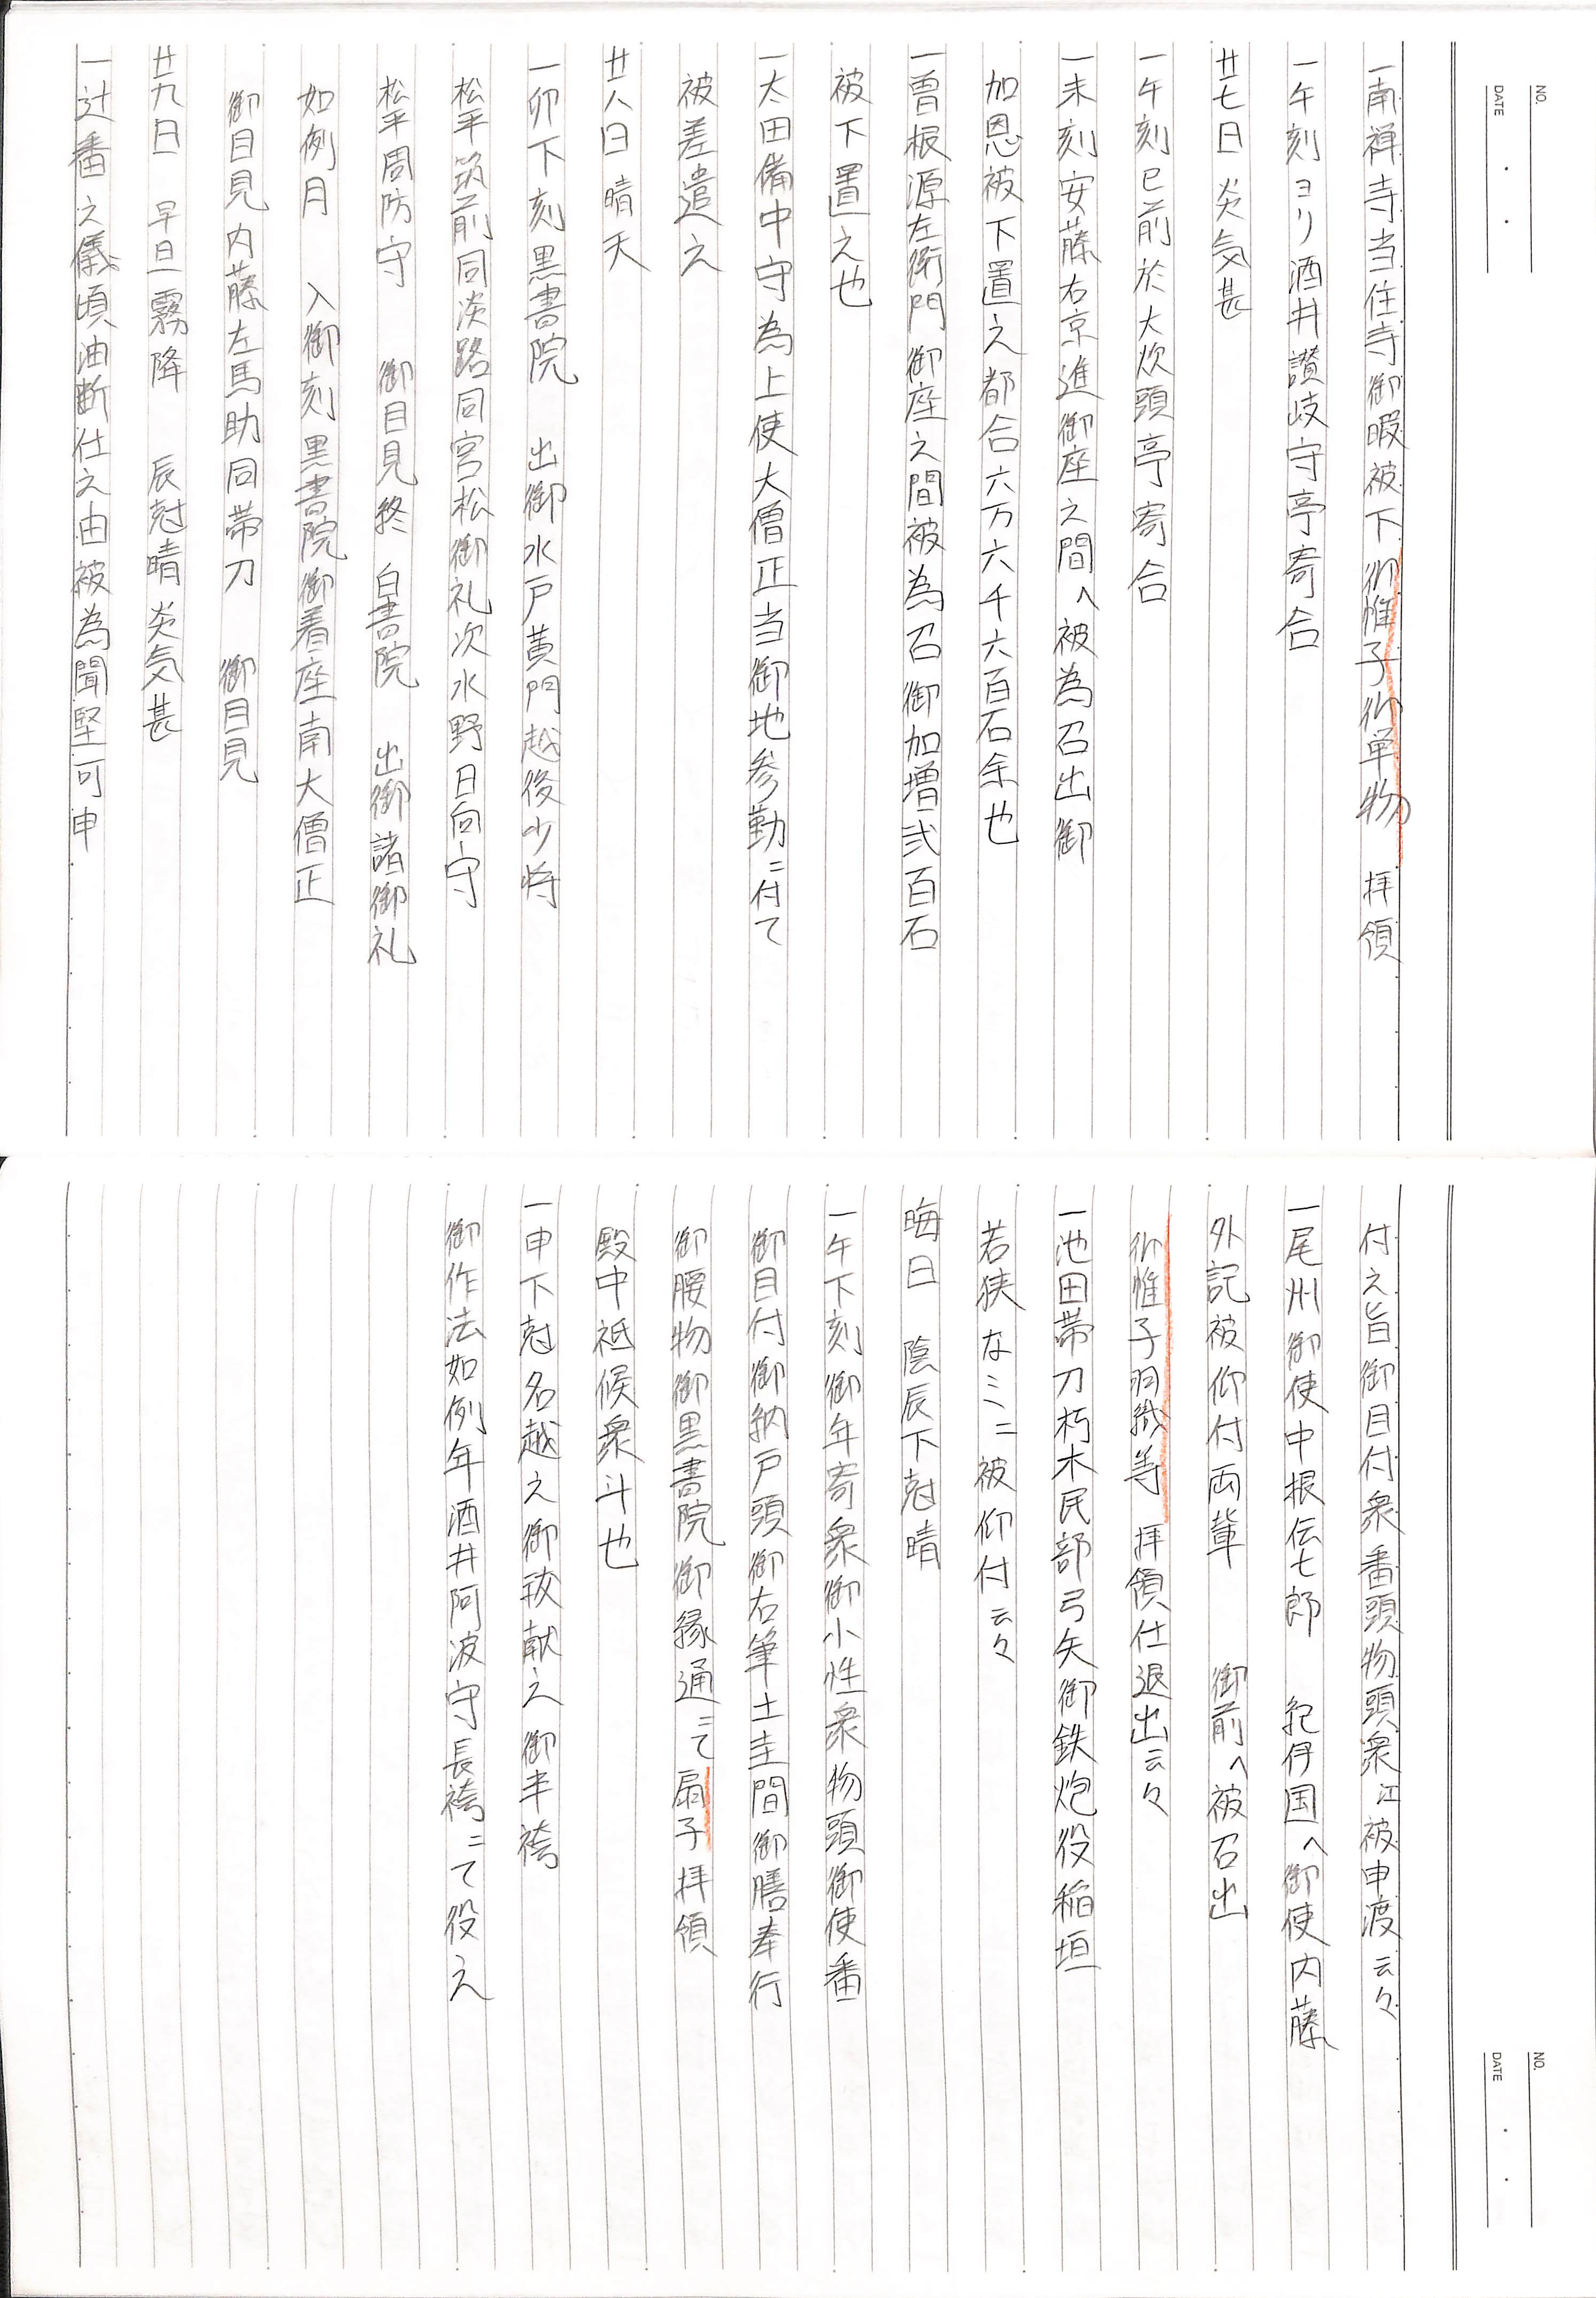 NO.
DATE
一南禅寺当住寺御暇被下御帷子御単物 拝領
一午刻ヨリ酒井讃岐守亭寄合
廿七日 炎気甚
一午刻已前於大炊頭亭寄合
一未刻安藤右京進御座之間へ被為召出御
加恩被下置之都合六万六千六百石余也
一曽根源左衛門御座之間被為召御加増弐百石
被下置之也
一太田備中守為上使大僧正当御地参勤ニ付て
被差遣之
廿八日 晴天
一卯下刻黒書院 出御水戸黄門越後少将
松平筑前同淡路同宮松御礼次水野日向守
松平周防守 御目見終 白書院 出御諸御礼
如例月 入御刻黒書院御着座南大僧正
御目見内藤左馬助同帯刀 御目見
廿九日 早旦霧降 辰尅晴炎気甚
一辻番之儀頃油断仕之由被為聞堅可申
付之旨御目付衆番頭物頭衆江被申渡云々
一尾州御使中根伝七郎 紀伊国へ御使内藤
外記被仰付両輩 御前へ被召出
御帷子羽織等 拝領仕退出云々
一池田帯刀朽木民部弓矢御鉄炮役稲垣
若狭なミニ被仰付云々
晦日 陰辰下尅晴
一午下刻御年寄衆御小性衆物頭御使番
御目付御納戸頭御右筆土圭間御膳奉行
御腰物御黒書院御縁通ニて扇子拝領
殿中祗候衆斗也
一申下尅名越之御祓献之御半袴
御作法如例年酒井阿波守長袴ニて役之
NO.
DATE